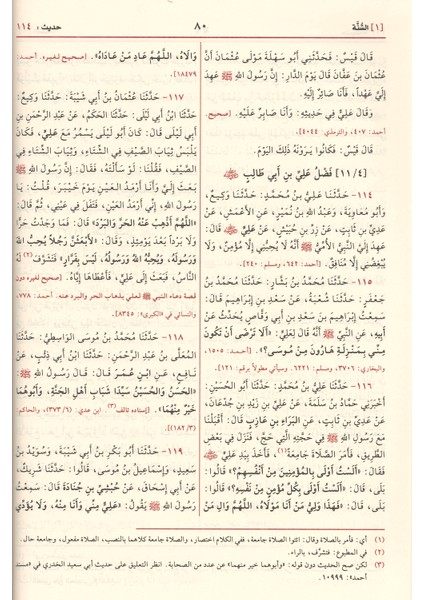 [١] السُّنَّة
٨٠
حديث: ١١٤
قَالَ قَيْسٌ: فَحَدَّثَنِي أَبُو سَهْلَةَ مَوْلَى عُثْمَانَ أَنَّ
عُثْمَانَ بْنَ عَفَّانَ قَالَ يَوْمَ الدَّارِ: إِنَّ رَسُولَ اللهِ ﷺ عَهِدَ
إِلَيَّ عَهْداً، فَأَنَا صَائِرٌ إِلَيْهِ.
وَقَالَ عَلِيٌّ فِي حَدِيثِهِ: وَأَنَا صَابِرٌ عَلَيْهِ. [صحيح.
أحمد: ٤٠٧، والترمذي: ٤٠٤٤].
قَالَ قَيْسٌ: فَكَانُوا يَرَوْنَهُ ذَلِكَ الْيَوْمَ.
[١١/٤] فَضْلُ عَلِيِّ بْنِ أَبِي طَالِبٍ
١١٤ - حَدَّثَنَا عَلِيُّ بْنُ مُحَمَّدٍ: حَدَّثَنَا وَكِيعٌ،
وَأَبُو مُعَاوِيَةَ، وَعَبْدُ اللهِ بْنُ نُمَيْرٍ، عَنِ الْأَعْمَشِ، عَنْ
عَدِيِّ بْنِ ثَابِتٍ، عَنْ زِرِّ بْنِ حُبَيْشٍ، عَنْ عَلِيٍّ قَالَ:
عَهِدَ إِلَيَّ النَّبِيُّ الْأُمِّيُّ ﷺ أَنَّهُ لَا يُحِبُّنِي إِلَّا مُؤْمِنٌ، وَلَا
يُبْغِضُنِي إِلَّا مُنَافِقٌ. [أحمد: ٦٤٢، ومسلم: ٢٤٠].
١١٥ - حَدَّثَنَا مُحَمَّدُ بْنُ بَشَّارٍ: حَدَّثَنَا مُحَمَّدُ بْنُ
جَعْفَرٍ: حَدَّثَنَا شُعْبَةُ، عَنْ سَعْدِ بْنِ إِبْرَاهِيمَ قَالَ:
سَمِعْتُ إِبْرَاهِيمَ بْنَ سَعْدِ بْنِ أَبِي وَقَّاصٍ يُحَدِّثُ عَنْ
أَبِيهِ، عَنِ النَّبِيِّ ﷺ أَنَّهُ قَالَ لِعَلِيٍّ: «أَلَا تَرْضَى أَنْ تَكُونَ
مِنِّي بِمَنْزِلَةِ هَارُونَ مِنْ مُوسَى؟». [أحمد: ١٥٠٥،
والبخاري: ٣٧٠٦، ومسلم: ٦٢٢١. وسيأتي مطولاً برقم: ١٢١].
١١٦ - حَدَّثَنَا عَلِيُّ بْنُ مُحَمَّدٍ: حَدَّثَنَا أَبُو الْحُسَيْنِ:
أَخْبَرَنِي حَمَّادُ بْنُ سَلَمَةَ، عَنْ عَلِيِّ بْنِ زَيْدِ بْنِ جُدْعَانَ،
عَنْ عَدِيِّ بْنِ ثَابِتٍ، عَنِ الْبَرَاءِ بْنِ عَازِبٍ قَالَ: أَقْبَلْنَا
مَعَ رَسُولِ اللهِ ﷺ فِي حَجَّتِهِ الَّتِي حَجَّ، فَنَزَلَ فِي بَعْضِ
الطَّرِيقِ، فَأَمَرَ: الصَّلَاةَ جَامِعَةً(١)، فَأَخَذَ بِيَدِ عَلِيٍّ
فَقَالَ: «أَلَسْتُ أَوْلَى بِالْمُؤْمِنِينَ مِنْ أَنْفُسِهِمْ؟» قَالُوا:
بَلَى، قَالَ: «أَلَسْتُ أَوْلَى بِكُلِّ مُؤْمِنٍ مِنْ نَفْسِهِ؟» قَالُوا:
بَلَى، قَالَ: «فَهَذَا وَلِيُّ مَنْ أَنَا مَوْلَاهُ، اللَّهُمَّ وَالِ مَنْ
وَالَاهُ، اللَّهُمَّ عَادِ مَنْ عَادَاهُ». [صحيح لغيره. أحمد:
١٨٤٧٩].
١١٧ - حَدَّثَنَا عُثْمَانُ بْنُ أَبِي شَيْبَةَ: حَدَّثَنَا وَكِيعٌ:
حَدَّثَنَا ابْنُ أَبِي لَيْلَى: حَدَّثَنَا الْحَكَمُ، عَنْ عَبْدِ الرَّحْمَنِ بْنِ
أَبِي لَيْلَى قَالَ: كَانَ أَبُو لَيْلَى يَسْمُرُ مَعَ عَلِيٍّ، فَكَانَ
يَلْبَسُ ثِيَابَ الصَّيْفِ فِي الشِّتَاءِ، وَثِيَابَ الشِّتَاءِ فِي
الصَّيْفِ، فَقُلْنَا: لَوْ سَأَلْتَهُ، فَقَالَ: إِنَّ رَسُولَ اللهِ ﷺ
بَعَثَ إِلَيَّ وَأَنَا أَرْمَدُ الْعَيْنِ يَوْمَ خَيْبَرَ، قُلْتُ: يَا
رَسُولَ اللهِ، إِنِّي أَرْمَدُ الْعَيْنِ، فَتَفَلَ فِي عَيْنِي، ثُمَّ قَالَ:
«اللَّهُمَّ أَذْهِبْ عَنْهُ الْحَرَّ وَالْبَرْدَ» قَالَ: فَمَا وَجَدْتُ حَرًّا
وَلَا بَرْداً بَعْدَ يَوْمِئِذٍ، وَقَالَ: «لَأَبْعَثَنَّ رَجُلاً يُحِبُّ اللهَ
وَرَسُولَهُ، وَيُحِبُّهُ اللهُ وَرَسُولُهُ، لَيْسَ بِفَرَّارٍ» فَتَشَرَّفَ(٢) لَهُ
النَّاسُ، فَبَعَثَ إِلَى عَلِيٍّ، فَأَعْطَاهَا إِيَّاهُ. [صحيح لغيره دون
قصة دعاء النبي ﷺ لعلي بذهاب الحر والبرد عنه. أحمد: ٧٧٨،
والنسائي في «الكبرى»: ٨٣٤٥].
١١٨ - حَدَّثَنَا مُحَمَّدُ بْنُ مُوسَى الْوَاسِطِيُّ: حَدَّثَنَا
الْمُعَلَّى بْنُ عَبْدِ الرَّحْمَنِ: حَدَّثَنَا ابْنُ أَبِي ذِئْبٍ، عَنْ
نَافِعٍ، عَنِ ابْنِ عُمَرَ قَالَ: قَالَ رَسُولُ اللهِ ﷺ:
«الْحَسَنُ وَالْحُسَيْنُ سَيِّدَا شَبَابِ أَهْلِ الْجَنَّةِ، وَأَبُوهُمَا
خَيْرٌ مِنْهُمَا». [إسناده تالف(٣) ابن عدي: (٦/٣٧٣)، والحاكم:
(٣/١٨٢)].
١١٩ - حَدَّثَنَا أَبُو بَكْرِ بْنُ أَبِي شَيْبَةَ، وَسُوَيْدُ بْنُ
سَعِيدٍ، وَإِسْمَاعِيلُ بْنُ مُوسَى، قَالُوا: حَدَّثَنَا شَرِيكٌ،
عَنْ أَبِي إِسْحَاقَ، عَنْ حُبْشِيِّ بْنِ جُنَادَةَ قَالَ: سَمِعْتُ
رَسُولَ اللهِ ﷺ يَقُولُ: «عَلِيٌّ مِنِّي وَأَنَا مِنْهُ، وَلَا يُؤَدِّي
(١) أي: فأمر بالصلاة وقال: ائتوا الصلاة جامعة، ففي الكلام اختصار، والصلاة جامعة كلاهما بالنصب، الصلاة مفعول، وجامعة حال.
(٢) في المطبوع: فتشرَّف، بالراء.
(٣) لكن صح الحديث دون قوله: «وأبوهما خير منهما» عن عدد من الصحابة. انظر التعليق على حديث أبي سعيد الخدري في «مسند
أحمد»: ١٠٩٩٩.